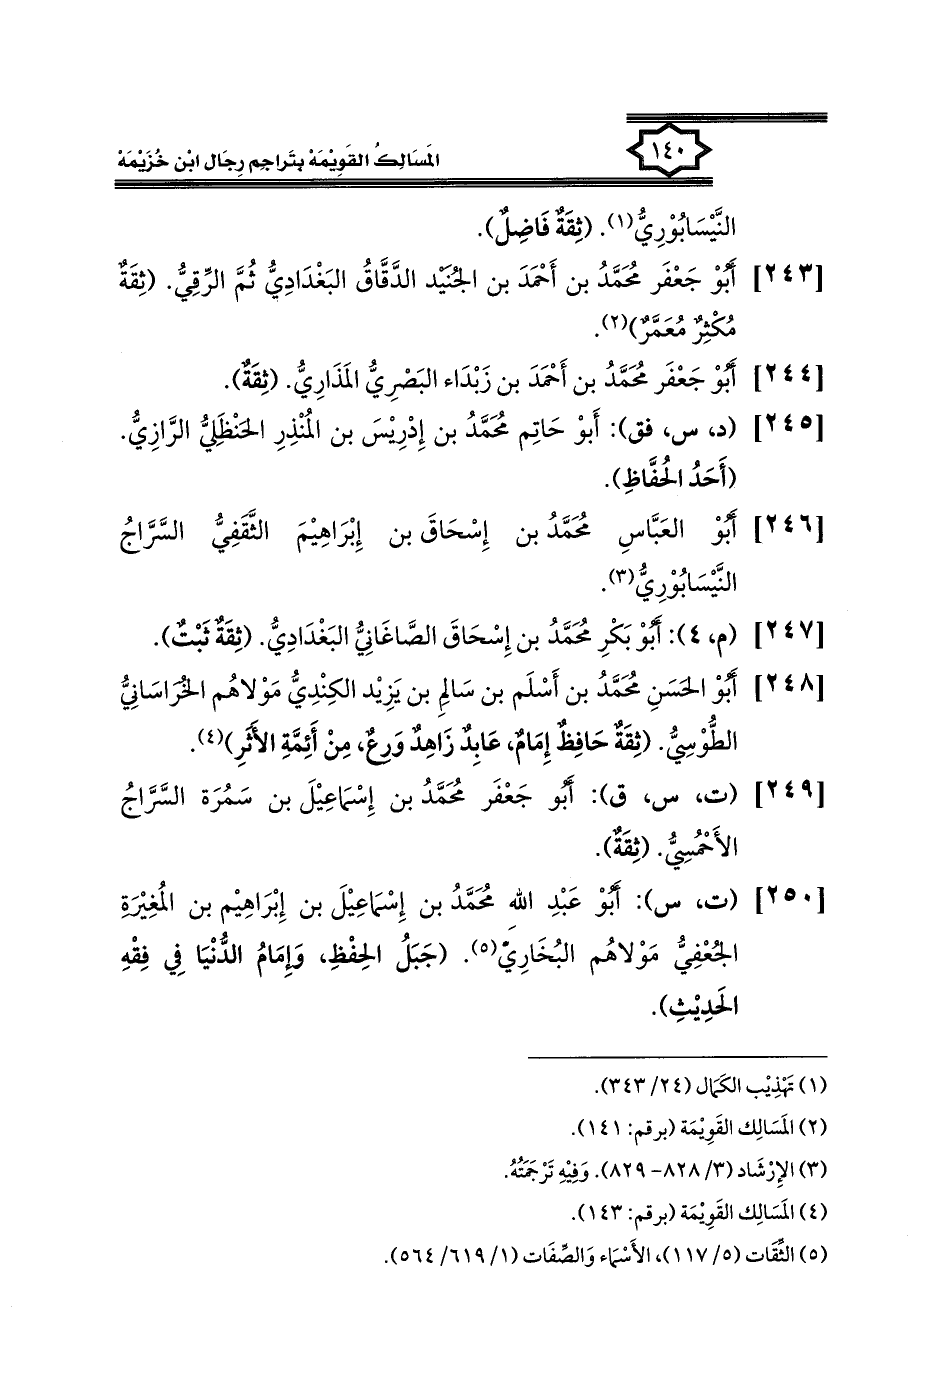 المَسَالِكُ القَوِيْمَة بِتَرَاجِمِ رِجَال ابْن خُزَيْمَة
١٤٠
النَّيْسَابُوْرِيُّ(١). (ثِقَةٌ فَاضِلٌ).
[٢٤٣] أَبُوْ جَعْفَر مُحَمَّدُ بن أَحْمَدَ بن الجُنَيْد الدَّقَّاقُ البَغْدَادِيُّ ثُمَّ الرِّقِيُّ. (ثِقَةٌ
مُكْثِرٌ مُعَمَّرٌ)(٢).
[٢٤٤] أَبُوْ جَعْفَر مُحَمَّدُ بن أَحْمَدَ بن زَبْدَاء البَصْرِيُّ المَذَارِيُّ. (ثِقَةٌ).
[٢٤٥] (د، س، فق): أَبوْ حَاتِم مُحَمَّدُ بن إِدْرِيْسَ بن المُنْذِر الحَنْظَلِيُّ الرَّازِيُّ.
(أَحَدُ الحُفَّاظِ).
[٢٤٦] أَبُوْ العَبَّاسِ مُحَمَّدُ بن إِسْحَاقَ بن إِبْرَاهِيْمَ الثَّقَفِيُّ السَّرَّاجُ
النَّيْسَابُوْرِيُّ(٣).
[٢٤٧] (م، ٤): أَبُوْ بَكْرِ مُحَمَّدُ بن إِسْحَاقَ الصَّاغَانِيُّ البَغْدَادِيُّ. (ثِقَةٌ ثَبْتٌ).
[٢٤٨] أَبُوْ الحَسَنِ مُحَمَّدُ بن أَسْلَم بن سَالِمِ بن يَزِيْد الكِنْدِيُّ مَوْلاهُم الخُرَاسَانِيُّ
الطُّوْسِيُّ. (ثِقَةٌ حَافِظٌ إِمَامٌ، عَابِدٌ زَاهِدٌ وَرِعٌ، مِنْ أَئِمَّةِ الأَثَرِ)(٤).
[٢٤٩] (ت، س، ق): أَبُو جَعْفَر مُحَمَّدُ بن إِسْمَاعِيْلَ بن سَمُرَة السَّرَّاجُ
الأَحْمُسِيُّ. (ثِقَةٌ).
[٢٥٠] (ت، س): أَبُوْ عَبْدِ الله مُحَمَّدُ بن إِسْمَاعِيْلَ بن إِبْرَاهِيْم بن المُغِيْرَةِ
الجُعْفِيُّ مَوْلاهُم البُخَارِيّ(٥). (جَبَلُ الحِفْظِ، وَإِمَامُ الدُّنْيَا فِي فِقْهِ
الحَدِيْثِ).
(١) تَهْذِيْب الكَمَال (٢٤/ ٣٤٣).
(٢) المَسَالِك القَوِيْمَة (برقم: ١٤١).
(٣) الإِرْشَاد (٣/ ٨٢٨-٨٢٩). وَفِيْهِ تَرْجَمَتُهُ.
(٤) المَسَالِك القَوِيْمَة (برقم: ١٤٣).
(٥) الثِّقَات (٥/ ١١٧)، الأَسْمَاء وَالصِّفَات (١/ ٦١٩/ ٥٦٤).